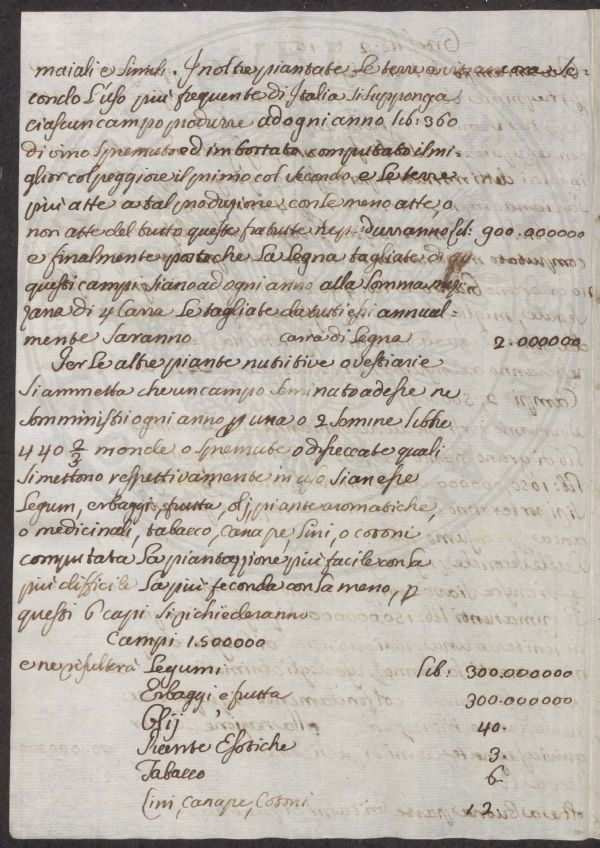 maiali e simili. Inoltre piantate le terre a se-
condo l'uso più frequente di Italia si supponga
ciascun campo produrre ad ogni anno lib: 360
di vino spremuto ed imbottato computato il mi-
glior col peggiore il primo col secondo e le terre
più atte a tal produzione con le meno atte, o
non atte del tutto queste fra tutte ne produrranno lib: 900.000000
e finalmente posto che la legna tagliate di
questi campi siano ad ogni anno alla somma mez-
zana di 4 Carra le tagliate da tutti essi annual-
mente saranno carra di legna 2.000000
Per le altre piante nutritive o vestiarie
si ammetta che un campo seminato ad esse ne
somministri ogni anno p una o 2 semine libbre
440 2/3 monde o spremute o disseccate quali
si mettono respettivamente in uso, sian esse
legum, erbaggi, frutta, olj piante aromatiche,
o medicinali, tabacco, canape, lini, o cotoni
computata la piantazione più facile con la
più difficile la più feconda con la meno, p
questi 6 capi si richiederanno
Campi 1.500000
e ne risulterà Legumi lib: 300.000000
Erbaggi e frutta 300.000000
Olij 40.
Piante Esotiche 3
Tabacco 6
Lini, Canape, Cotoni 12.